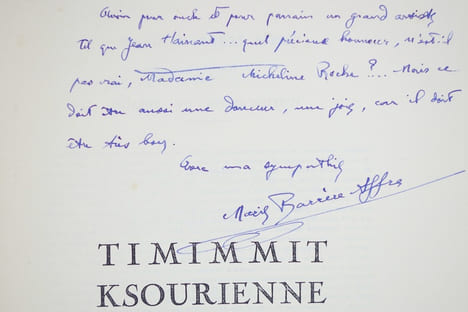 Avoir pour oncle et pour parrain un grand artiste
tel que Jean Hainaut... quel précieux honneur, n'est-il
pas vrai, Madame Micheline Roche ?... Mais ce
doit être aussi une douceur, une joie, car il doit
être très bon.
Avec ma sympathie
Marie Barrère Affre
TIMIMMIT
KSOURIENNE